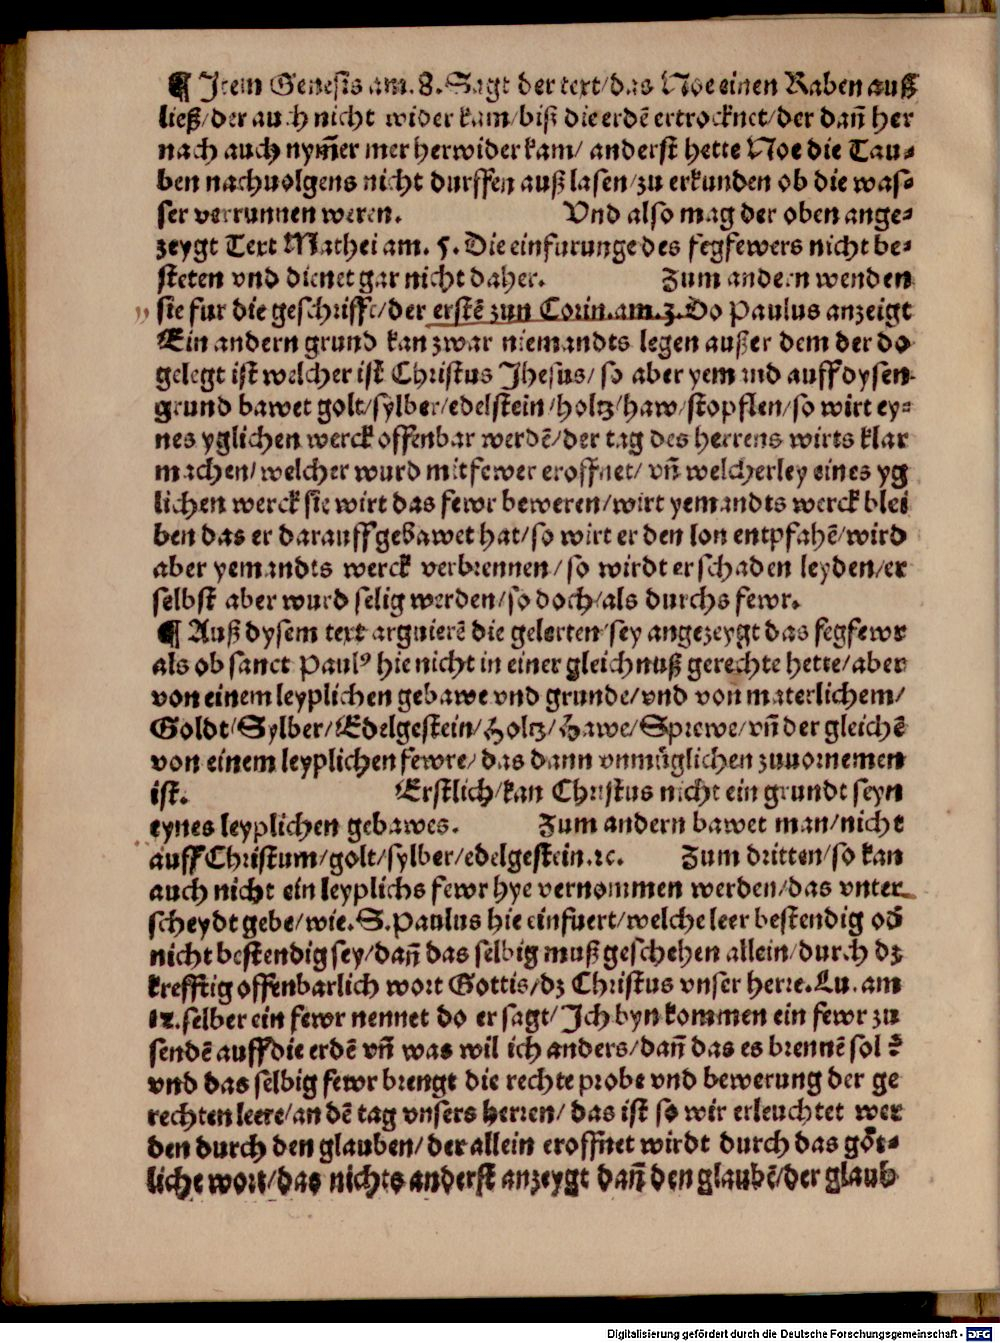 ¶ Item Genesis am. 8. Sagt der text/das Noe einen Raben auß
ließ/der auch nicht wider kam/biß die erdē ertrocknet/der dañ her
nach auch nym̄er mer herwider kam/ anderst hette Noe die Tau⸗
ben nachuolgens nicht durffen auß lasen/zu erkunden ob die was⸗
ser verrunnen weren. Vnd also mag der oben ange⸗
zeygt Text Mathei am. 5. Die einfurunge des fegfewers nicht be⸗
steten vnd dienet gar nicht daher. Zum andern wenden
sie fur die geschrifft/der erstē zun Corin. am. 3. Do Paulus anzeigt
Ein andern grund kan zwar niemandts legen außer dem der do
gelegt ist welcher ist Christus Jhesus/ so aber yemand auff dysen
grund bawet golt/sylber/edelstein/holtz/haw/stopflen/so wirt ey⸗
nes yglichen werck offenbar werdē/der tag des herrens wirts klar
machen/welcher wurd mit fewer eroffnet/ vñ welcherley eines yg
lichen werck sie wirt das fewr beweren/wirt yemandts werck blei
ben das er darauff gebawet hat/so wirt er den lon entpfahē/wird
aber yemandts werck verbrennen/so wirdt er schaden leyden/er
selbst aber wurd selig werden/so doch/als durchs fewr.
¶ Auß dysem text arguierē die gelerten/sey angezeygt das fegfewr
als ob sanct Paulꝰ hie nicht in einer gleichnuß gerechte hette/aber
von einem leyplichen gebawe vnd grunde/vnd von materlichem/
Goldt/Sylber/Edelgestein/Holtz/Hawe/Sprewe/vñ der gleichē
von einem leyplichen fewre/ das dann vnmüglichen zuuornemen
ist. Erstlich/kan Christus nicht ein grundt seyn
eynes leyplichen gebawes. Zum andern bawet man/nicht
auff Christum/golt/sylber/edelgestein.ꝛc. Zum dritten/so kan
auch nicht ein leyplichs fewr hye vernommen werden/das vnter
scheydt gebe/wie. S. Paulus hie einfuert/welche leer bestendig od̄
nicht bestendig sey/dañ das selbig muß geschehen allein/durch dz
krefftig offenbarlich wort Gottis/dz Christus vnser herre. Lu. am
12. selber ein fewr nennet do er sagt/Ich byn kommen ein fewr zu
sendē auff die erdē vñ was wil ich anders/dañ das es brennē sol ?
vnd das selbig fewr brengt die rechte probe vnd bewerung der ge
rechten leere/an dē tag vnsers herren/ das ist so wir erleuchtet wer
den durch den glauben/der allein eroffnet wirdt durch das göt⸗
liche wort/das nichts anderst anzeygt dañ den glaubē/der glaub
Digitalisierung gefördert durch die Deutsche Forschungsgemeinschaft - DFG